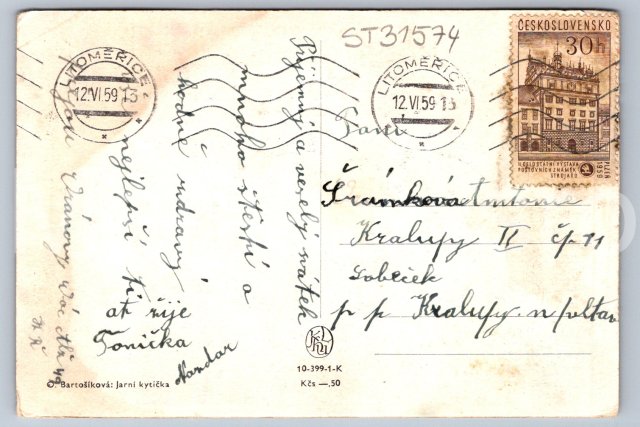 ST31574
ČESKOSLOVENSKO
30h
II.CELOSTÁTNÍ VÝSTAVA
POŠTOVNÍCH ZNÁMEK
PLZEŇ 1959
LITOMĚŘICE
12.VI.59 - 13
LITOMĚŘICE
12.VI.59 - 13
Příjemný a veselý svátek
mnoho štěstí a
hodně zdraví
nejlepší ti
ať žije
Tonička
Nandar
Vránovy
Paní
Šrámková Antonie
Kralupy II čp 11
Lobeček
p p Kralupy n/Vltav
10-399-1-K
Kčs —,50
O. Bartošíková: Jarní kytička